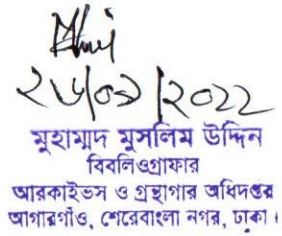 ২৬/০১/২০২২
মুহাম্মদ মুসলিম উদ্দিন
বিবলিওগ্রাফার
আরকাইভস ও গ্রন্থাগার অধিদপ্তর
আগারগাঁও, শেরেবাংলা নগর, ঢাকা।